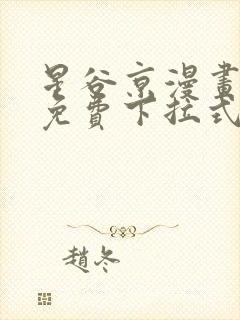 星谷京漫畫
免費下拉式
趙冬